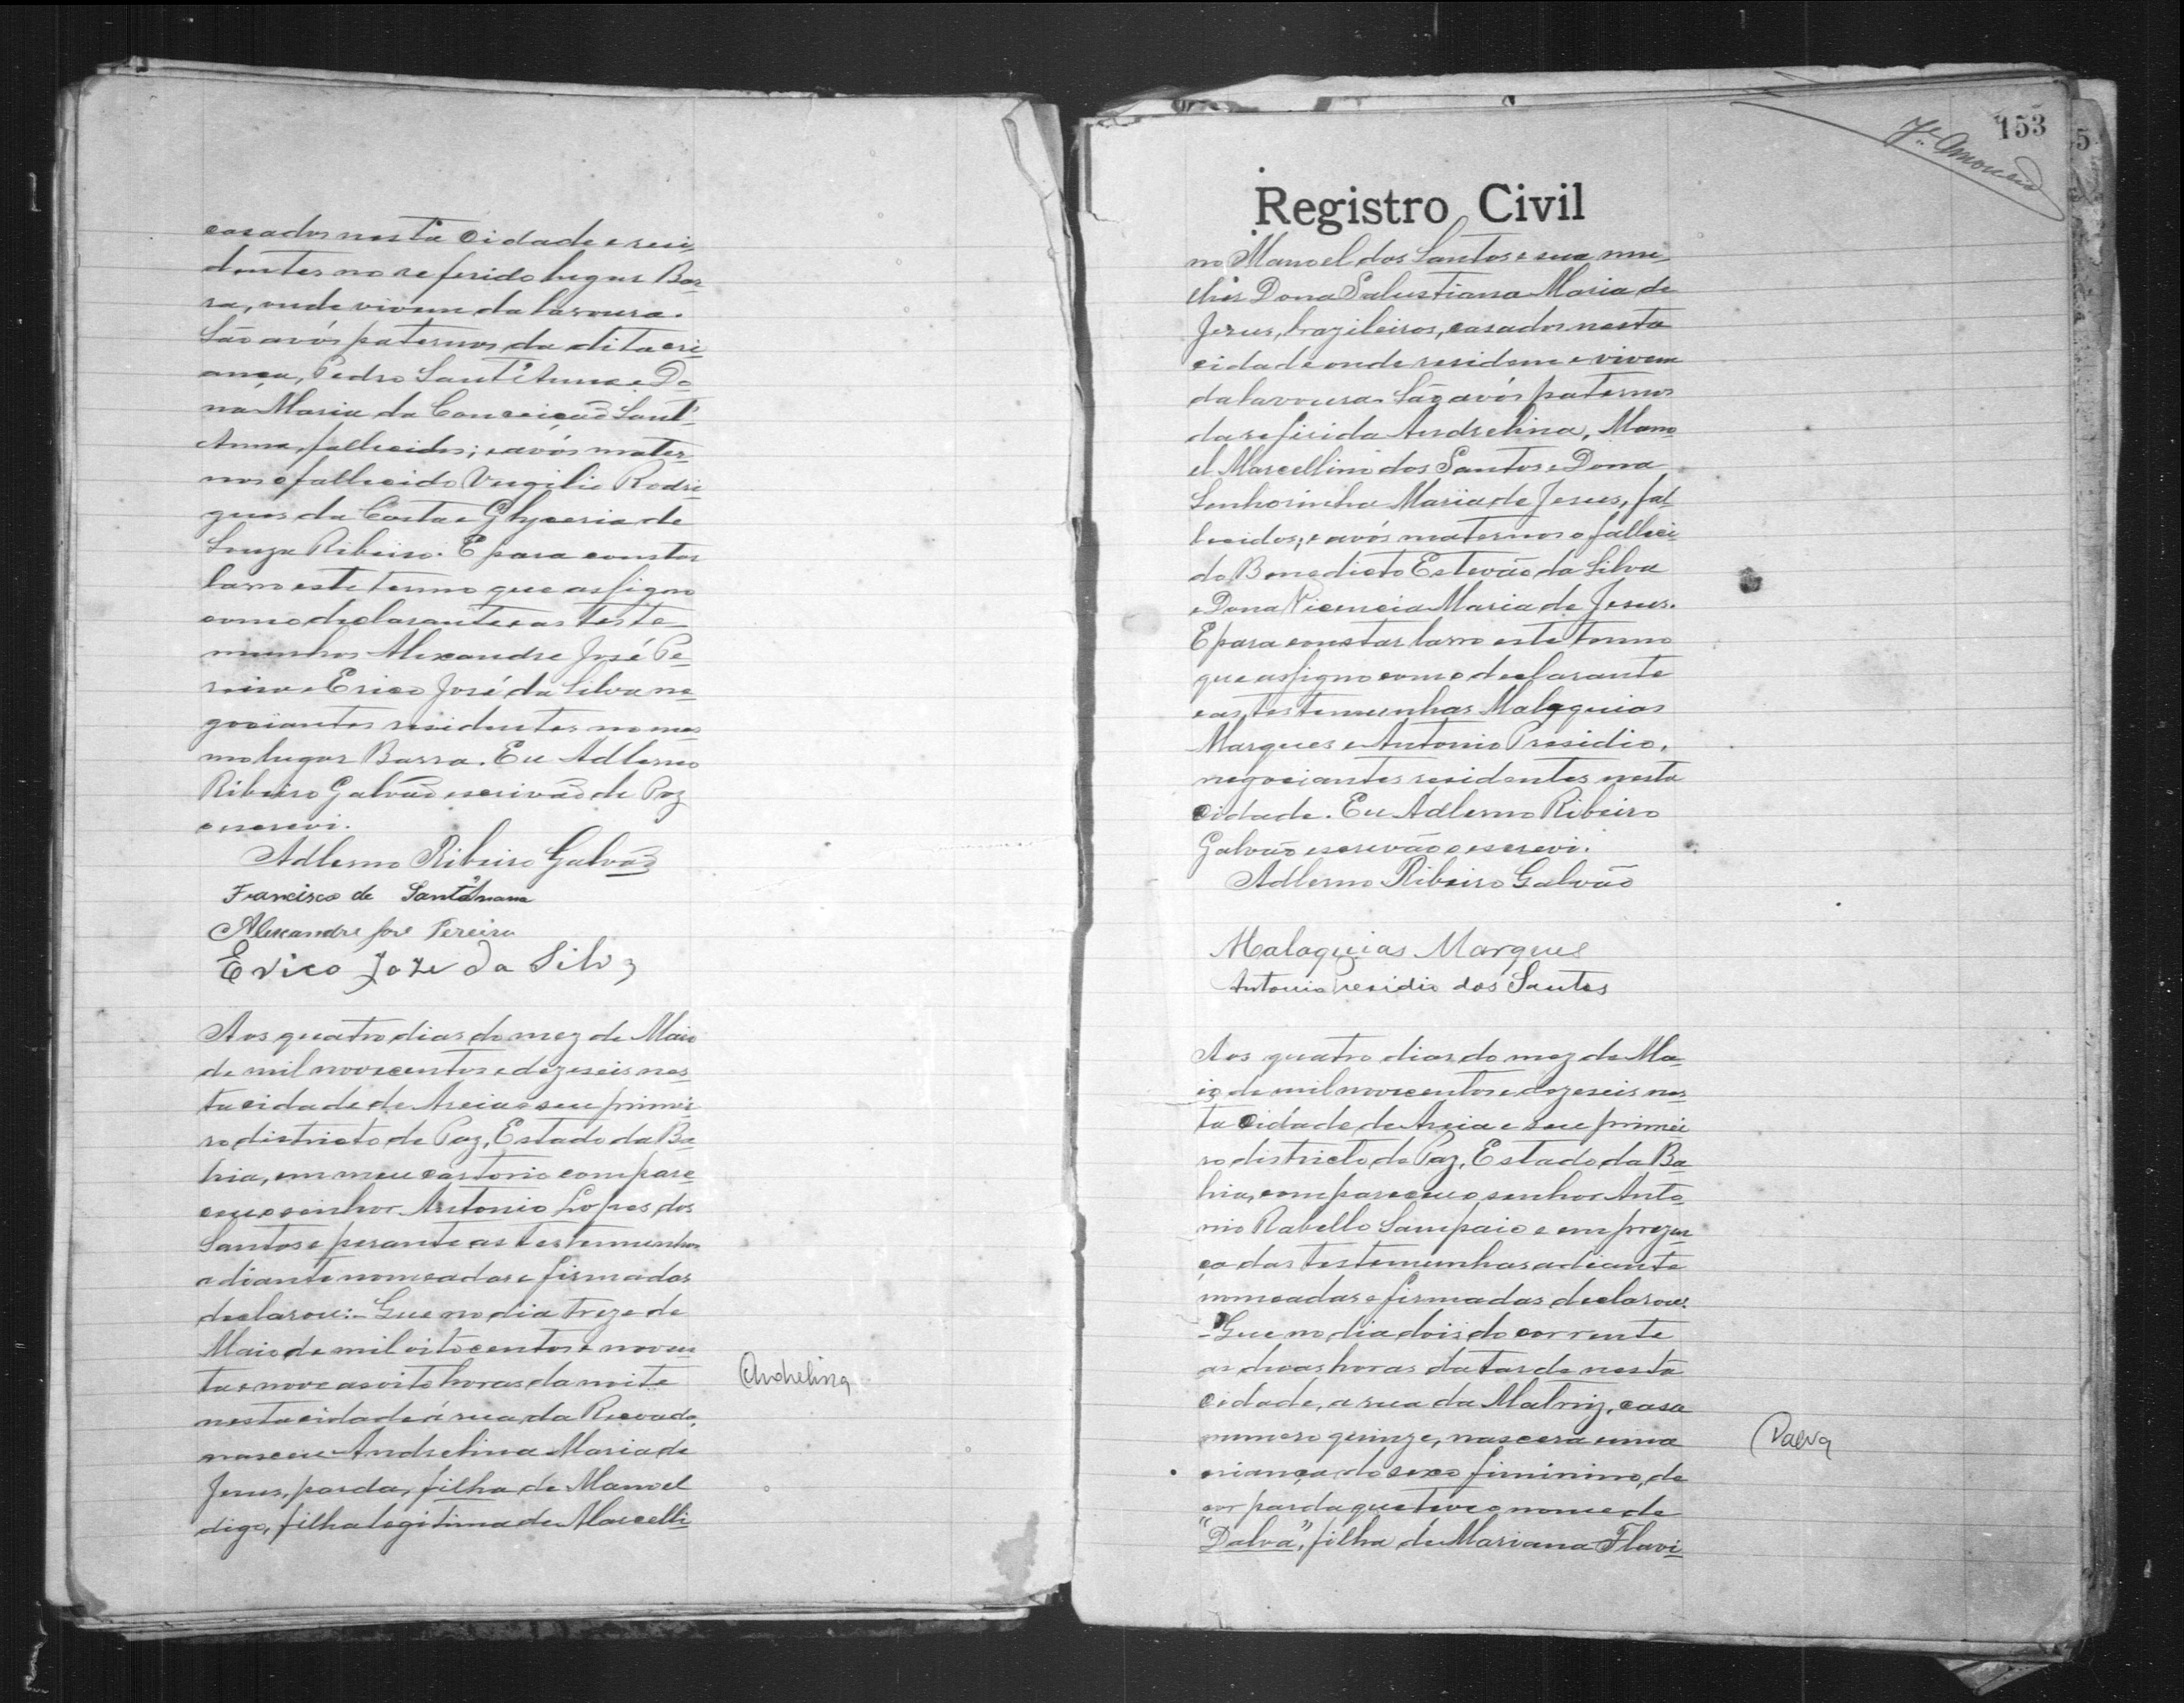 casados nesta Cidade e resi-
dentes no referido lugar Bar-
ra, onde vivem da lavoura.
São avós paternos da dita cri-
ança, Pedro Sant'Anna e Do-
na Maria da Conceição Sant'
Anna, fallecidos; e avós mater-
nos o fallecido Virgilio Rodri-
gues da Costa e Glyceria de
Souza Ribeiro. E para constar
lavro este termo que assigno
com o declarante e as teste-
munhas Alexandre José Pe-
reira e Erico José da Silva ne-
gociantes residentes no mes-
mo lugar Barra. Eu Adlerno
Ribeiro Galvão escrivão de Paz
o escrevi.
Adlerno Ribeiro Galvão
Francisco de Sant'Anna
Alexandre José Pereira
Erico Joze da Silva
Aos quatro dias do mez de Maio
de mil novecentos e dezeseis nes-
ta cidade de Areia e seu primei-
ro districto de Paz, Estado da Ba-
hia, em meu cartorio compare-
ceu o senhor Antonio Lopes dos
Santos e perante as testemunhas
adiante nomeadas e firmadas
declarou:- Que no dia treze de
Maio de mil oitocentos e noven-
ta e nove as oito horas da noite
nesta cidade á rua da
nasceu Andrelina Maria de
Jesus, parda, filha de Manoel
digo, filha legitima de Marcelli-
Andrelina
153
Registro Civil
no Manoel dos Santos e sua mu-
lher Dona Salustiana Maria de
Jesus, brazileiros, casados nesta
cidade onde residem e vivem
da lavoura. São avós paternos
da referida Andrelina, Mano-
el Marcellino dos Santos e Dona
Senhorinha Maria de Jesus, fal-
lecidos; e avós maternos o falleci-
do Benedicto Estevão da Silva
e Dona Vicencia Maria de Jesus.
E para constar lavro este termo
que assigno com o declarante
e as testemunhas Malaquias
Marques e Antonio Presidio,
negociantes residentes nesta
cidade. Eu Adlerno Ribeiro
Galvão escrivão o escrevi.
Adlerno Ribeiro Galvão
Malaquias Marques
Antonio Presidio dos Santos
Aos quatro dias do mez de Ma-
io de mil novecentos e dezeseis nes-
ta Cidade de Areia e seu primei-
ro districto de Paz, Estado da Ba-
hia, compareceu o senhor Anto-
nio Rabello Sampaio e em prezen-
ça das testemunhas adiante
nomeadas e firmadas declarou:
-Que no dia dois do corrente
as duas horas da tarde nesta
Cidade, a rua da Matriz, casa
numero quinze, nascera uma
criança do sexo fiminino, de
cor parda que teve o nome de
"Dalva", filha de Mariana Flavi-
Dalva